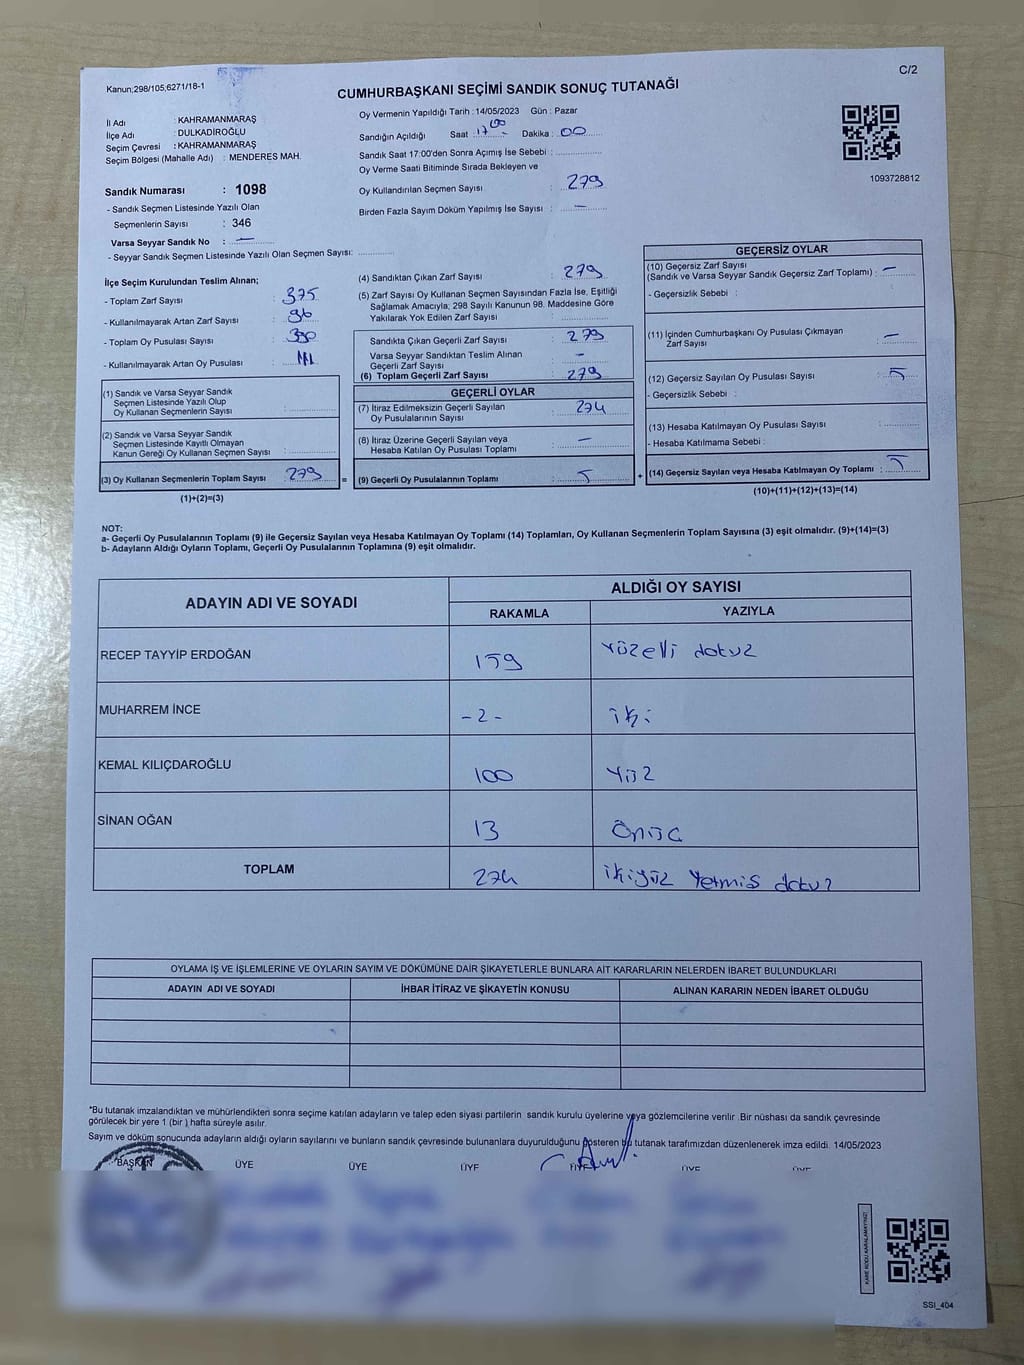 Kanun;298/105;6271/18-1
C/2
CUMHURBAŞKANI SEÇİMİ SANDIK SONUÇ TUTANAĞI
İl Adı : KAHRAMANMARAŞ
İlçe Adı : DULKADİROĞLU
Seçim Çevresi : KAHRAMANMARAŞ
Seçim Bölgesi (Mahalle Adı) : MENDERES MAH.
Sandık Numarası : 1098
- Sandık Seçmen Listesinde Yazılı Olan
Seçmenlerin Sayısı : 346
Varsa Seyyar Sandık No : —
- Seyyar Sandık Seçmen Listesinde Yazılı Olan Seçmen Sayısı:
Oy Vermenin Yapıldığı Tarih : 14/05/2023 Gün : Pazar
Sandığın Açıldığı Saat : 17 00 Dakika : 00
Sandık Saat 17:00'den Sonra Açımış İse Sebebi :
Oy Verme Saati Bitiminde Sırada Bekleyen ve
Oy Kullandırılan Seçmen Sayısı : 279
Birden Fazla Sayım Döküm Yapılmış İse Sayısı : —
1093728812
İlçe Seçim Kurulundan Teslim Alınan;
- Toplam Zarf Sayısı : 375
- Kullanılmayarak Artan Zarf Sayısı : 96
- Toplam Oy Pusulası Sayısı : 390
- Kullanılmayarak Artan Oy Pusulası : 111
(1) Sandık ve Varsa Seyyar Sandık
Seçmen Listesinde Yazılı Olup
Oy Kullanan Seçmenlerin Sayısı :
(2) Sandık ve Varsa Seyyar Sandık
Seçmen Listesinde Kayıtlı Olmayan
Kanun Gereği Oy Kullanan Seçmen Sayısı :
(3) Oy Kullanan Seçmenlerin Toplam Sayısı : 279 =
(1)+(2)=(3)
(4) Sandıktan Çıkan Zarf Sayısı : 279
(5) Zarf Sayısı Oy Kullanan Seçmen Sayısından Fazla İse, Eşitliği
Sağlamak Amacıyla; 298 Sayılı Kanunun 98. Maddesine Göre
Yakılarak Yok Edilen Zarf Sayısı :
Sandıkta Çıkan Geçerli Zarf Sayısı : 279
Varsa Seyyar Sandıktan Teslim Alınan
Geçerli Zarf Sayısı : —
(6) Toplam Geçerli Zarf Sayısı : 279
GEÇERLİ OYLAR
(7) İtiraz Edilmeksizin Geçerli Sayılan
Oy Pusulalarının Sayısı : 274
(8) İtiraz Üzerine Geçerli Sayılan veya
Hesaba Katılan Oy Pusulası Toplamı : —
(9) Geçerli Oy Pusulalarının Toplamı : 5 +
GEÇERSİZ OYLAR
(10) Geçersiz Zarf Sayısı
(Sandık ve Varsa Seyyar Sandık Geçersiz Zarf Toplamı) : —
- Geçersizlik Sebebi :
(11) İçinden Cumhurbaşkanı Oy Pusulası Çıkmayan
Zarf Sayısı : —
(12) Geçersiz Sayılan Oy Pusulası Sayısı : 5
- Geçersizlik Sebebi :
(13) Hesaba Katılmayan Oy Pusulası Sayısı :
- Hesaba Katılmama Sebebi :
(14) Geçersiz Sayılan veya Hesaba Katılmayan Oy Toplamı : 5
(10)+(11)+(12)+(13)=(14)
NOT:
a- Geçerli Oy Pusulalarının Toplamı (9) ile Geçersiz Sayılan veya Hesaba Katılmayan Oy Toplamı (14) Toplamları, Oy Kullanan Seçmenlerin Toplam Sayısına (3) eşit olmalıdır. (9)+(14)=(3)
b- Adayların Aldığı Oyların Toplamı, Geçerli Oy Pusulalarının Toplamına (9) eşit olmalıdır.
ADAYIN ADI VE SOYADI
ALDIĞI OY SAYISI
RAKAMLA YAZIYLA
RECEP TAYYİP ERDOĞAN 159 Yüzelli dokuz
MUHARREM İNCE - 2 - iki
KEMAL KILIÇDAROĞLU 100 Yüz
SİNAN OĞAN 13 Onüç
TOPLAM 274 ikiyüz Yetmiş dokuz
OYLAMA İŞ VE İŞLEMLERİNE VE OYLARIN SAYIM VE DÖKÜMÜNE DAİR ŞİKAYETLERLE BUNLARA AİT KARARLARIN NELERDEN İBARET BULUNDUKLARI
ADAYIN ADI VE SOYADI İHBAR İTİRAZ VE ŞİKAYETİN KONUSU ALINAN KARARIN NEDEN İBARET OLDUĞU
*Bu tutanak imzalandıktan ve mühürlendikten sonra seçime katılan adayların ve talep eden siyasi partilerin sandık kurulu üyelerine veya gözlemcilerine verilir .Bir nüshası da sandık çevresinde
görülecek bir yere 1 (bir ) hafta süreyle asılır.
Sayım ve döküm sonucunda adayların aldığı oyların sayılarını ve bunların sandık çevresinde bulunanlara duyurulduğunu gösteren bu tutanak tarafımızdan düzenlenerek imza edildi. 14/05/2023
BAŞKAN ÜYE ÜYE ÜYE ÜYE ÜYE ÜYE
KARE KODU KARALAMAYINIZ!
SSI_404